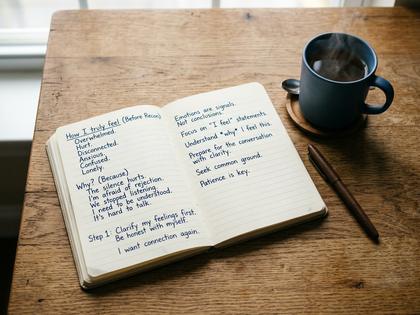 How I truly feel (Before Recon)
Overwhelmed.
Hurt.
Disconnected.
Anxious.
Confused.
Lonely.
Why? (Because)
The silence hurts.
I'm afraid of rejection.
We stopped listening.
I need to be understood.
It's hard to talk.
Step 1: Clarify my feelings first.
Be honest with myself.
I want connection again.
Emotions are signals.
Not conclusions.
Focus on "I feel" statements.
Understand *why* I feel this.
Prepare for the conversation
with clarity.
Seek common ground.
Patience is key.